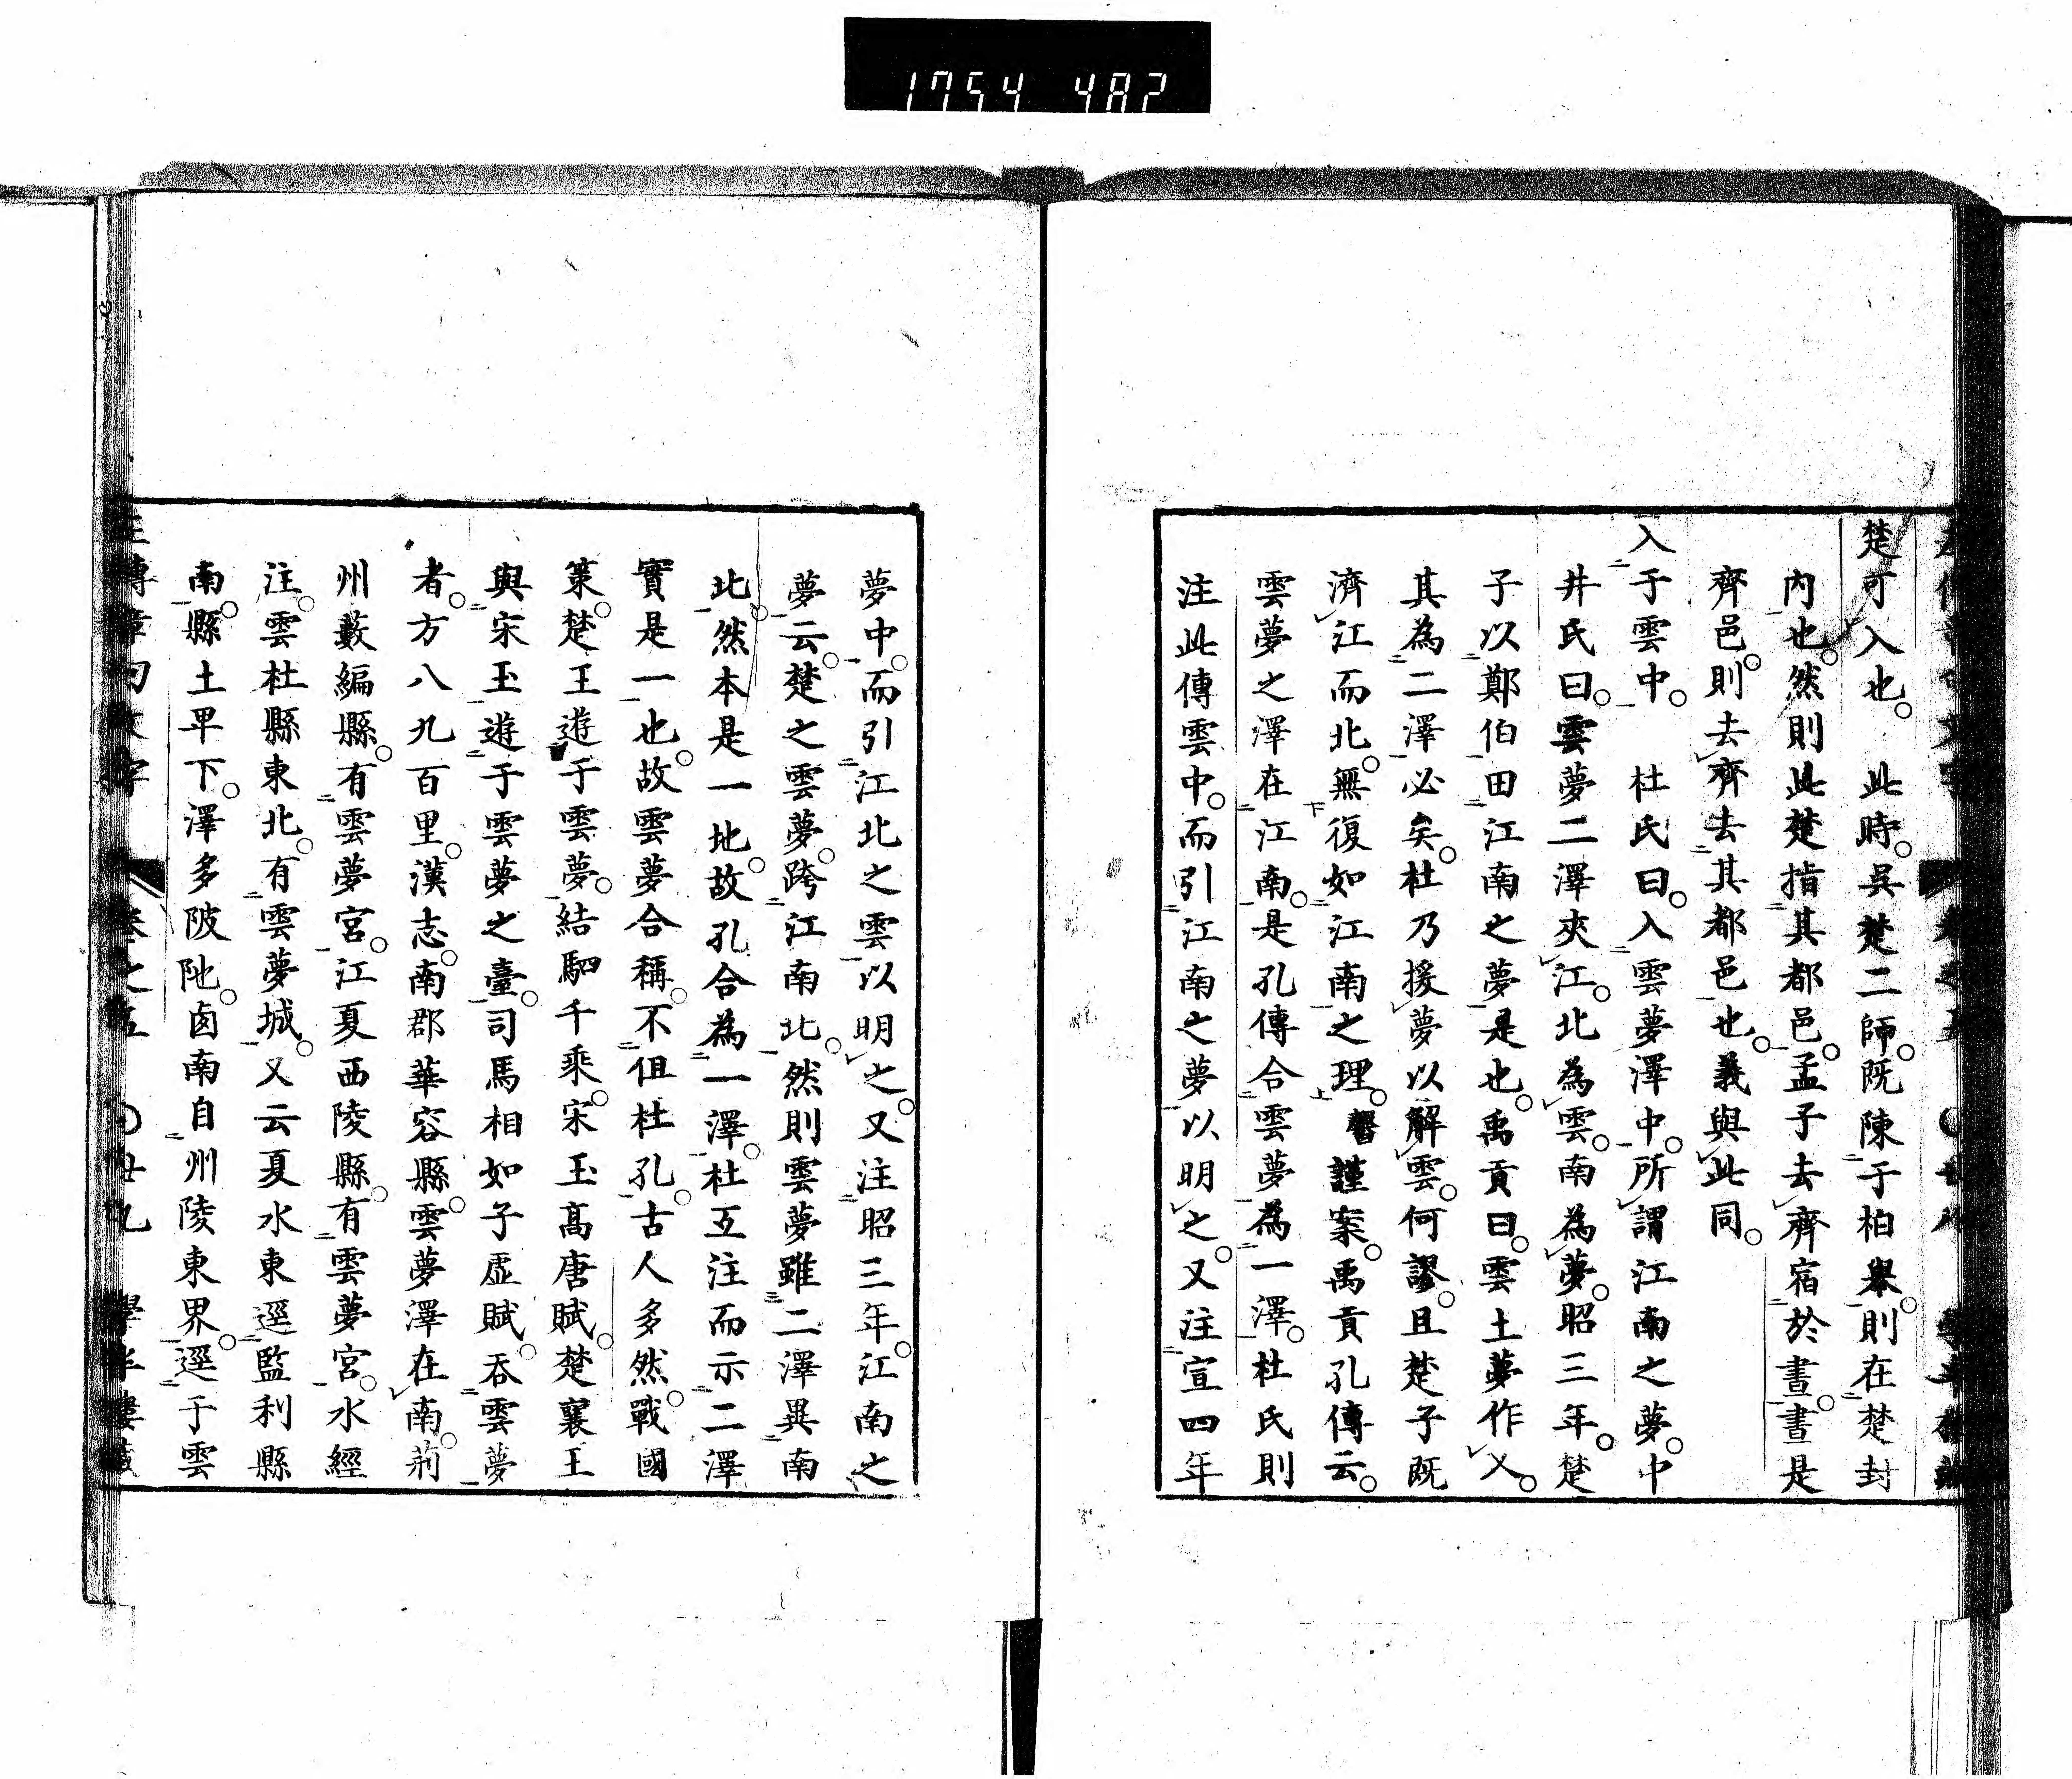 1754 482
楚可入也。　此時。吳楚二師。既陳于柏舉。則在楚封
內也。然則此楚指其都邑。孟子去齊宿於晝。晝是
齊邑。則去齊去其都邑也。義與此同。
入于雲中。　杜氏曰。入雲夢澤中。所謂江南之夢。中
井氏曰。雲夢二澤夾江。北為雲。南為夢。昭三年。楚
子以鄭伯田江南之夢是也。禹貢曰。雲土夢作乂。
其為二澤必矣。杜乃援夢以解雲。何謬。且楚子既
濟江而北。無復如江南之理。謹案。禹貢孔傳云。
雲夢之澤在江南。是孔傳合雲夢為一澤。杜氏則
注此傳雲中。而引江南之夢以明之。又注宣四年
夢中。而引江北之雲以明之。又注昭三年。江南之
夢云。楚之雲夢。跨江南北。然則雲夢雖二澤異南
北。然本是一地。故孔合為一澤。杜互注而示二澤
實是一也。故雲夢合稱。不但杜孔。古人多然。戰國
策。楚王遊于雲夢。結駟千乘。宋玉高唐賦。楚襄王
與宋玉遊于雲夢之臺。司馬相如子虛賦。吞雲夢
者。方八九百里。漢志。南郡華容縣。雲夢澤在南。荊
州藪編縣。有雲夢宮。江夏西陵縣。有雲夢宮。水經
注。雲杜縣東北。有雲夢城。又云夏水東逕監利縣
南。縣土卑下。澤多陂阤。卤南自州陵東界。逕于雲
卷之五　〇廿九